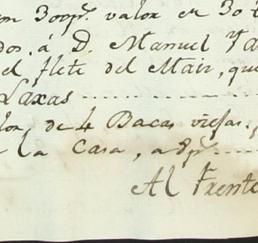 300 ps. valor en 30
dos. á D. Manuel
el flete del Maiz, que
Laxas
de 4 Bacas viejas.
la Casa, a 8 ps.
Al frente